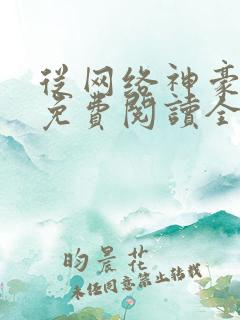 從网络神豪
免費閱讀全
昀晨花
未经同意禁止转载